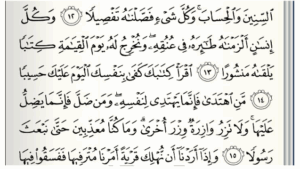 ٱلسِّنِينَ وَٱلْحِسَابَ ۚ وَكُلَّ شَىْءٍ فَصَّلْنَٰهُ تَفْصِيلًا ١٢ وَكُلَّ
إِنسَٰنٍ أَلْزَمْنَٰهُ طَٰٓئِرَهُۥ فِى عُنُقِهِۦ ۖ وَنُخْرِجُ لَهُۥ يَوْمَ ٱلْقِيَٰمَةِ كِتَٰبًا
يَلْقَىٰهُ مَنشُورًا ١٣ ٱقْرَأْ كِتَٰبَكَ كَفَىٰ بِنَفْسِكَ ٱلْيَوْمَ عَلَيْكَ حَسِيبًا
١٤ مَّنِ ٱهْتَدَىٰ فَإِنَّمَا يَهْتَدِى لِنَفْسِهِۦ ۖ وَمَن ضَلَّ فَإِنَّمَا يَضِلُّ
عَلَيْهَا ۚ وَلَا تَزِرُ وَازِرَةٌ وِزْرَ أُخْرَىٰ ۗ وَمَا كُنَّا مُعَذِّبِينَ حَتَّىٰ نَبْعَثَ
رَسُولًا ١٥ وَإِذَآ أَرَدْنَآ أَن نُّهْلِكَ قَرْيَةً أَمَرْنَا مُتْرَفِيهَا فَفَسَقُوا۟ فِيهَا